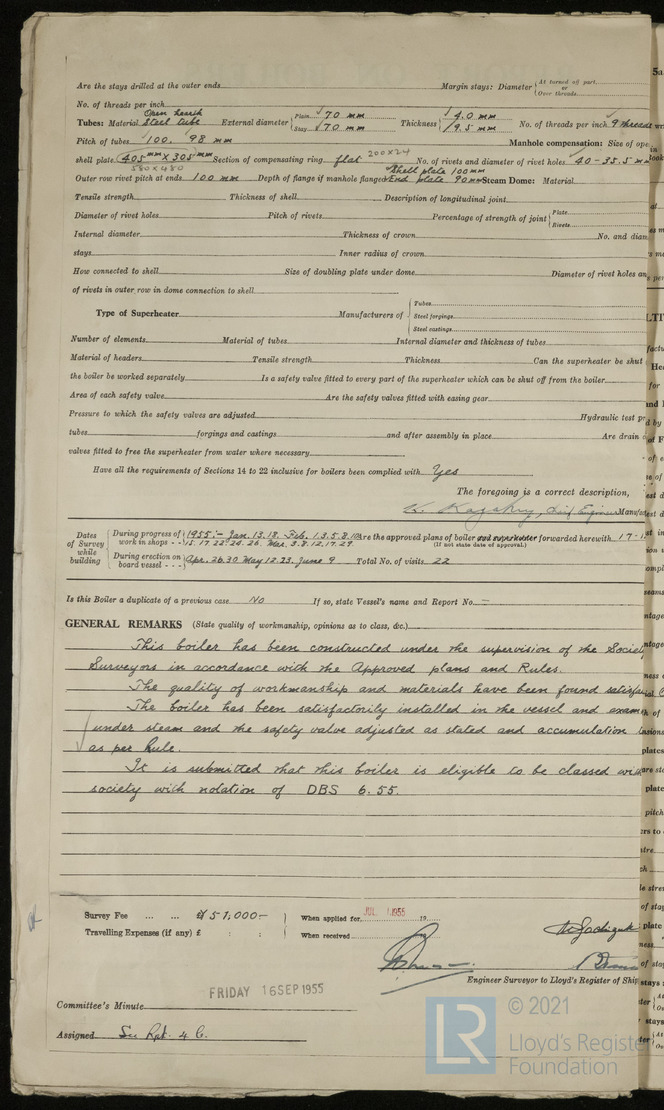 Are the stays drilled at the outer ends Margin stays: Diameter { At turned off part. or Over threads
No. of threads per inch
Tubes: Material Open hearth Steel tube External diameter { Plain 70 mm Stay 70 mm Thickness { 4.0 mm 9.5 mm No. of threads per inch 9 threads
Pitch of tubes 100. 98 mm Manhole compensation: Size of ope
shell plate 405 mm X 305 mm Section of compensating ring flat 200x24 No. of rivets and diameter of rivet holes 40-35.5 mm
580x480
Outer row rivet pitch at ends 100 mm Depth of flange if manhole flanged Shell plate 100 mm End plate 90 mm Steam Dome: Material
Tensile strength Thickness of shell Description of longitudinal joint
Diameter of rivet holes Pitch of rivets Percentage of strength of joint { Plate Rivets
Internal diameter Thickness of crown No. and diam
stays Inner radius of crown
How connected to shell Size of doubling plate under dome Diameter of rivet holes an
of rivets in outer row in dome connection to shell
Type of Superheater Manufacturers of { Tubes Steel forgings Steel castings
Number of elements Material of tubes Internal diameter and thickness of tubes
Material of headers Tensile strength Thickness Can the superheater be shut
the boiler be worked separately Is a safety valve fitted to every part of the superheater which can be shut off from the boiler
Area of each safety valve Are the safety valves fitted with easing gear
Pressure to which the safety valves are adjusted Hydraulic test pr
tubes forgings and castings and after assembly in place Are drain
valves fitted to free the superheater from water where necessary
Have all the requirements of Sections 14 to 22 inclusive for boilers been complied with Yes
The foregoing is a correct description,
Chief Engineer Manufa
Dates of Survey while building { During progress of work in shops - - 1955:- Jan. 13.18. Feb. 1.3.5.8.10 15.17.22.24.26. Mar. 3.8.12.17.29. Are the approved plans of boiler and superheater forwarded herewith 17-1
(If not state date of approval.)
During erection on board vessel - - - Apr. 26.30 May 12.23. June 9 Total No. of visits 22
Is this Boiler a duplicate of a previous case No If so, state Vessel's name and Report No. -
GENERAL REMARKS (State quality of workmanship, opinions as to class, &c.)
This boiler has been constructed under the supervision of the Society
Surveyors in accordance with the Approved plans and Rules.
The quality of workmanship and materials have been found satisfa
The boiler has been satisfactorily installed in the vessel and exam
under steam and the safety valve adjusted as stated and accumulation
as per Rule.
It is submitted that this boiler is eligible to be classed with
society with notation of DBS 6.55.
Survey Fee ... ... ¥ 51,000- When applied for JUL 1955 19
Travelling Expenses (if any) £ : : When received 19
Engineer Surveyor to Lloyd's Register of Ship
FRIDAY 16 SEP 1955
Committee's Minute
Assigned See Rpt. 4 C.
LR © 2021
Lloyd's Register
Foundation